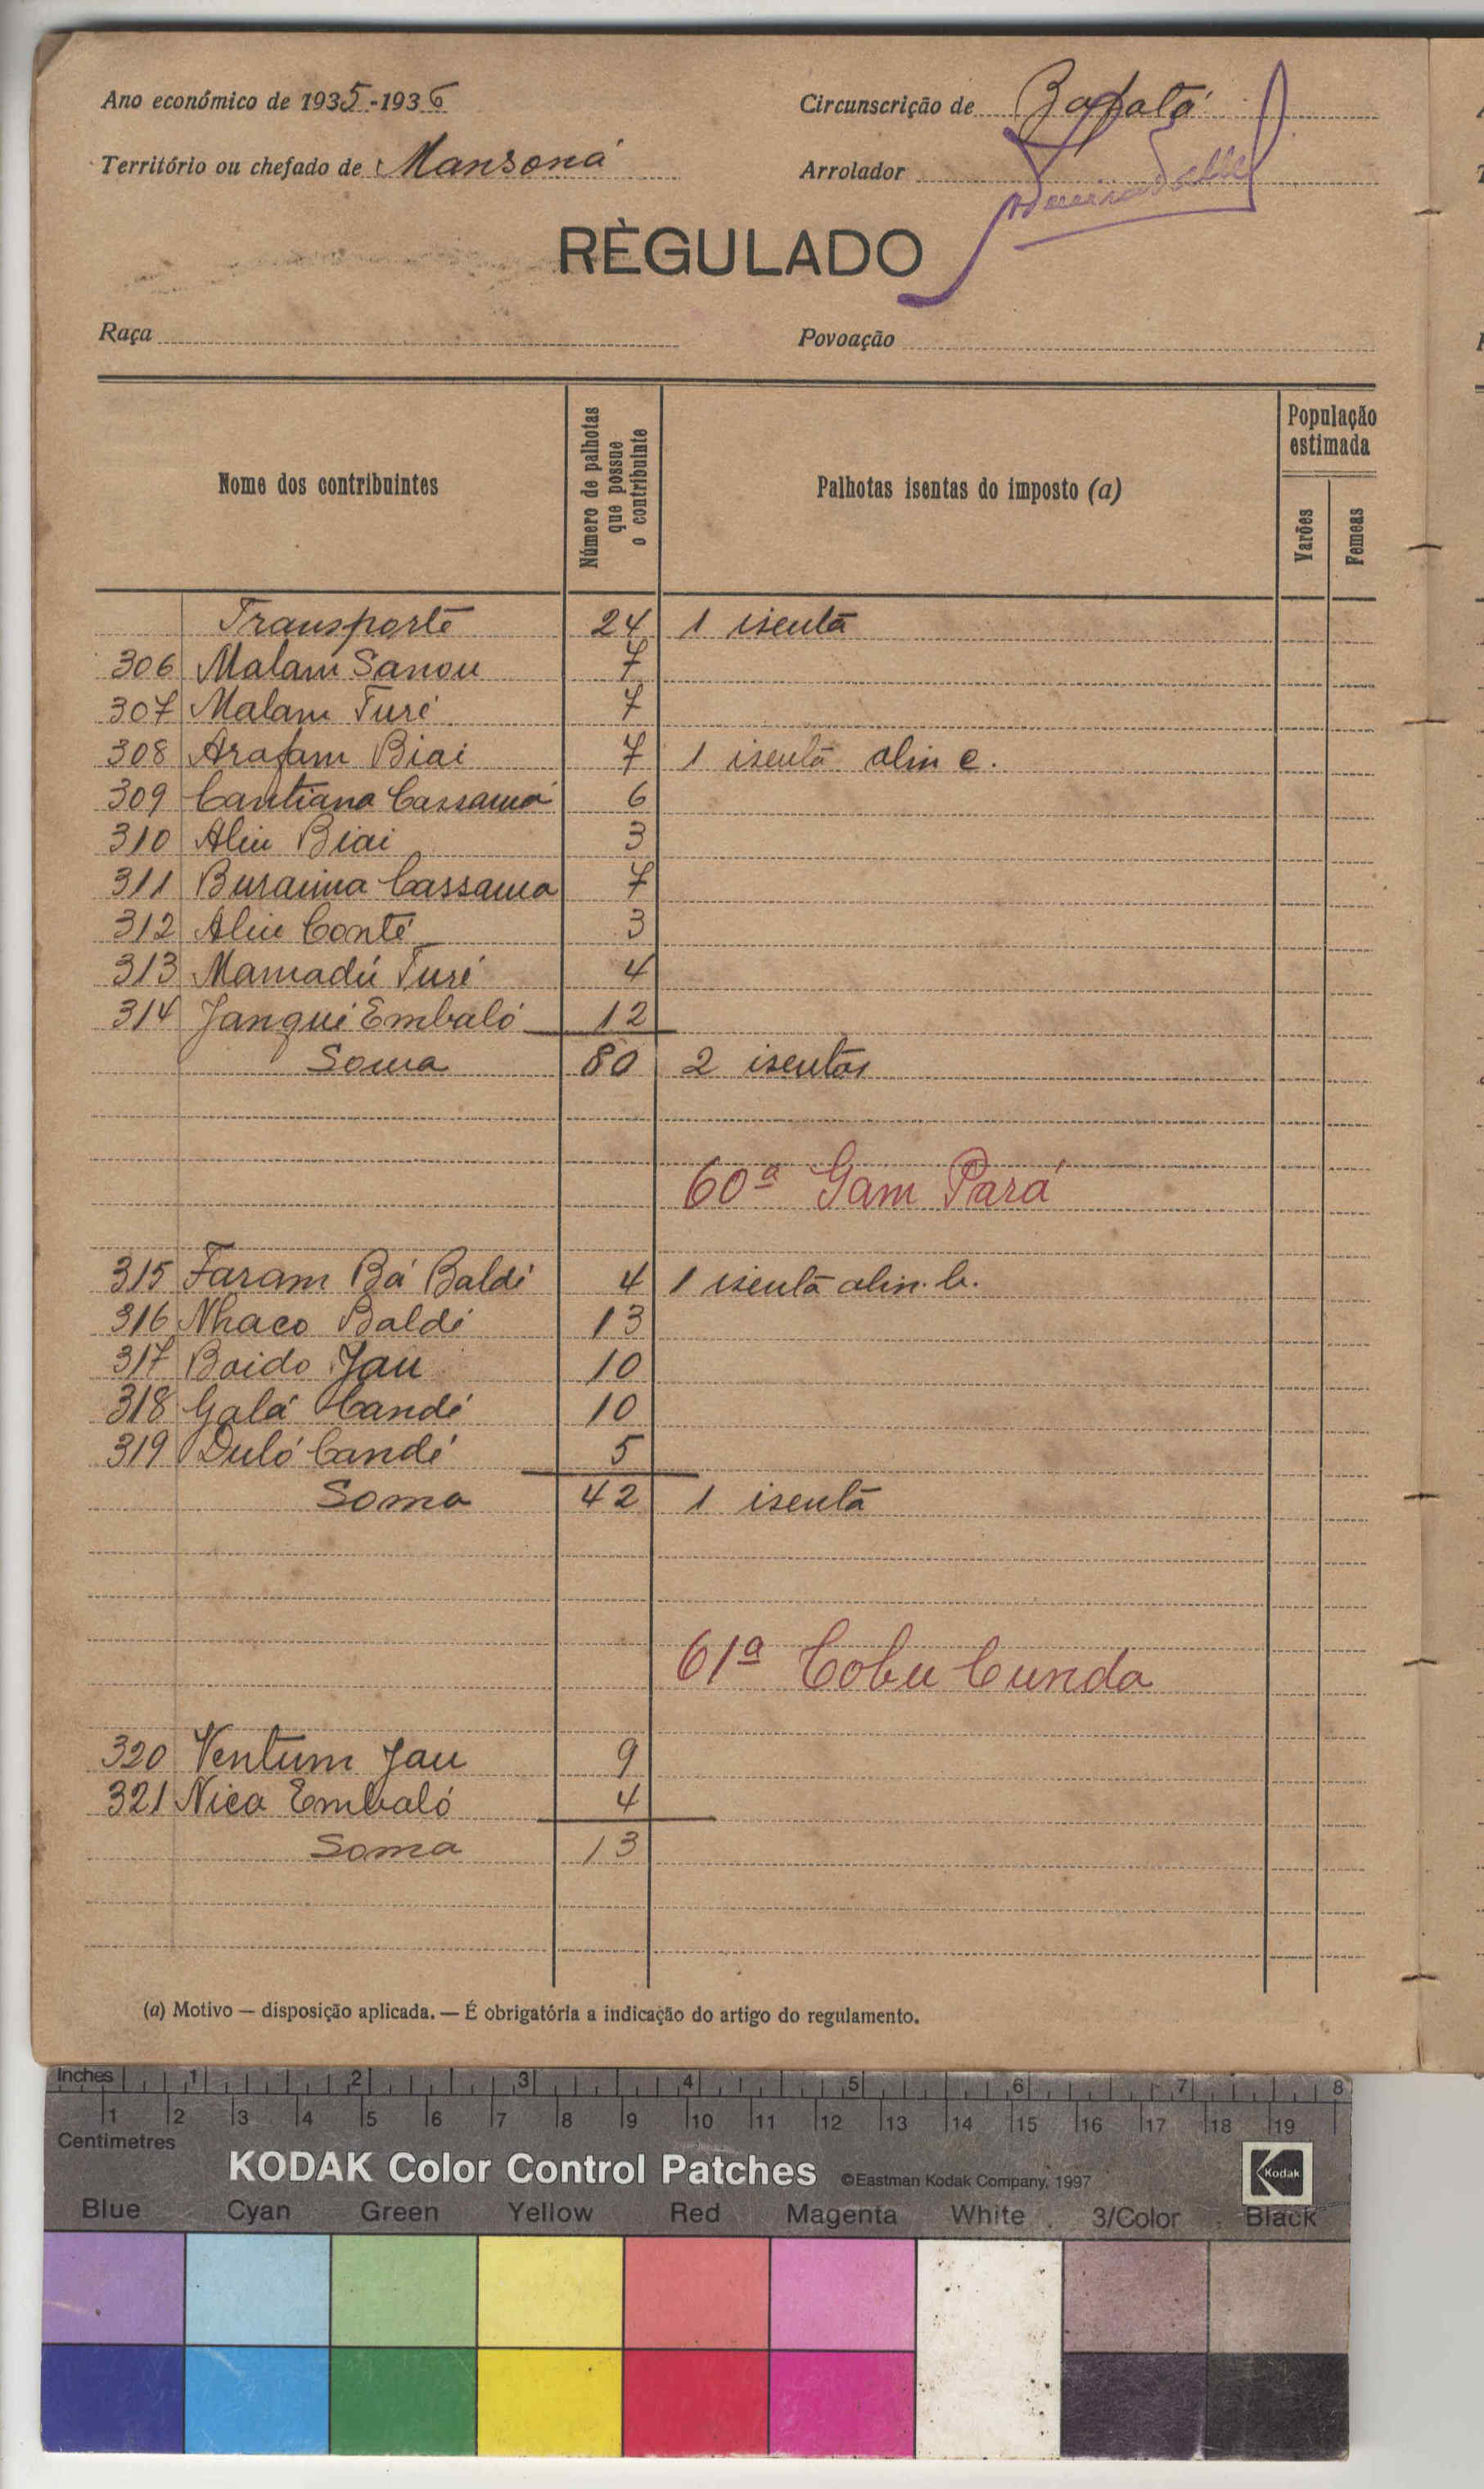 Ano económico de 1935-1936
Circunscrição de Bafatá
Território ou chefado de Mansoná
Arrolador
RÈGULADO
Raça
Povoação
Nome dos contribuintes
Número de palhotas que possue o contribuinte
Palhotas isentas do imposto (a)
População estimada
Varões
Femeas
Transporte 24 1 isenta
306 Malam Sanou 7
307 Malam Turé 7
308 Arafam Biai 7 1 isenta alin c.
309 Cantiana Cassamá 6
310 Aliu Biai 3
311 Buraima Cassama 7
312 Aliu Conté 3
313 Mamadú Turé 4
314 Janqui Embaló 12
Soma 80 2 isentas
60ª Gam Pará
315 Faram Bá Baldé 4 1 isenta alin. b.
316 Nhaco Baldé 13
317 Boido Jau 10
318 Galá Candé 10
319 Duló Candé 5
Soma 42 1 isenta
61ª Cobu Cunda
320 Ventum Jau 9
321 Nica Embaló 4
Soma 13
(a) Motivo — disposição aplicada. — É obrigatória a indicação do artigo do regulamento.
Inches 1 2 3 4 5 6 7 8
1 2 3 4 5 6 7 8 9 10 11 12 13 14 15 16 17 18 19
Centimetres
KODAK Color Control Patches ©Eastman Kodak Company, 1997 Kodak
Blue Cyan Green Yellow Red Magenta White 3/Color Black